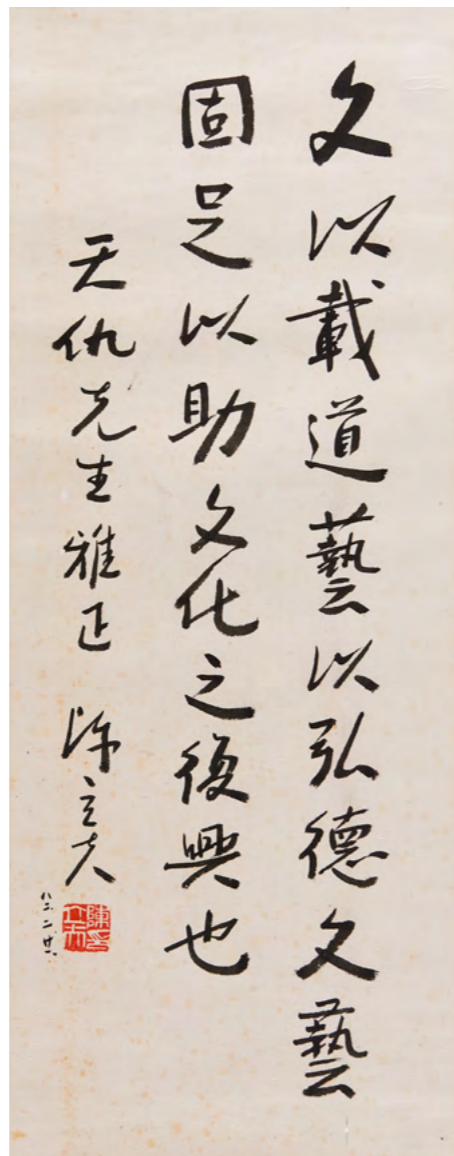 文以載道藝以弘德文藝
固足以助文化之復興也
天仇先生雅正 陳立夫
八二、二、廿六
陳立夫印